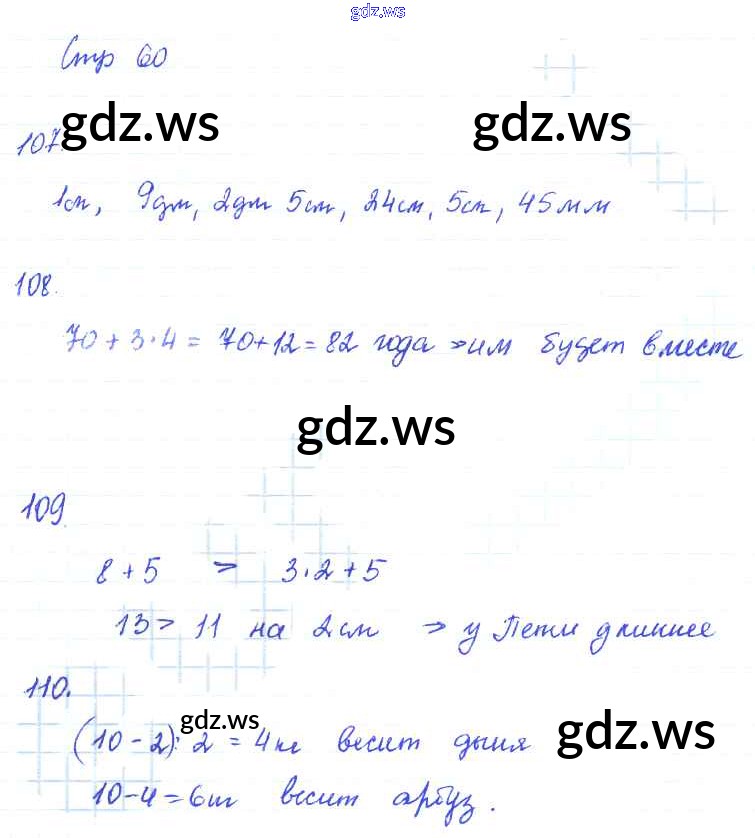 gdz.ws
Стр 60
gdz.ws gdz.ws
107.
1см, 9дм, 2дм 5см, 24см, 5см, 45мм
108.
70 + 3·4 = 70+12 = 82 года => им будет вместе
gdz.ws
109
8 + 5 > 3·2 + 5
13 > 11 на 2см => у Пети длиннее
110.
gdz.ws gdz.ws
(10 - 2) : 2 = 4кг весит дыня
10-4 = 6кг весит арбуз.